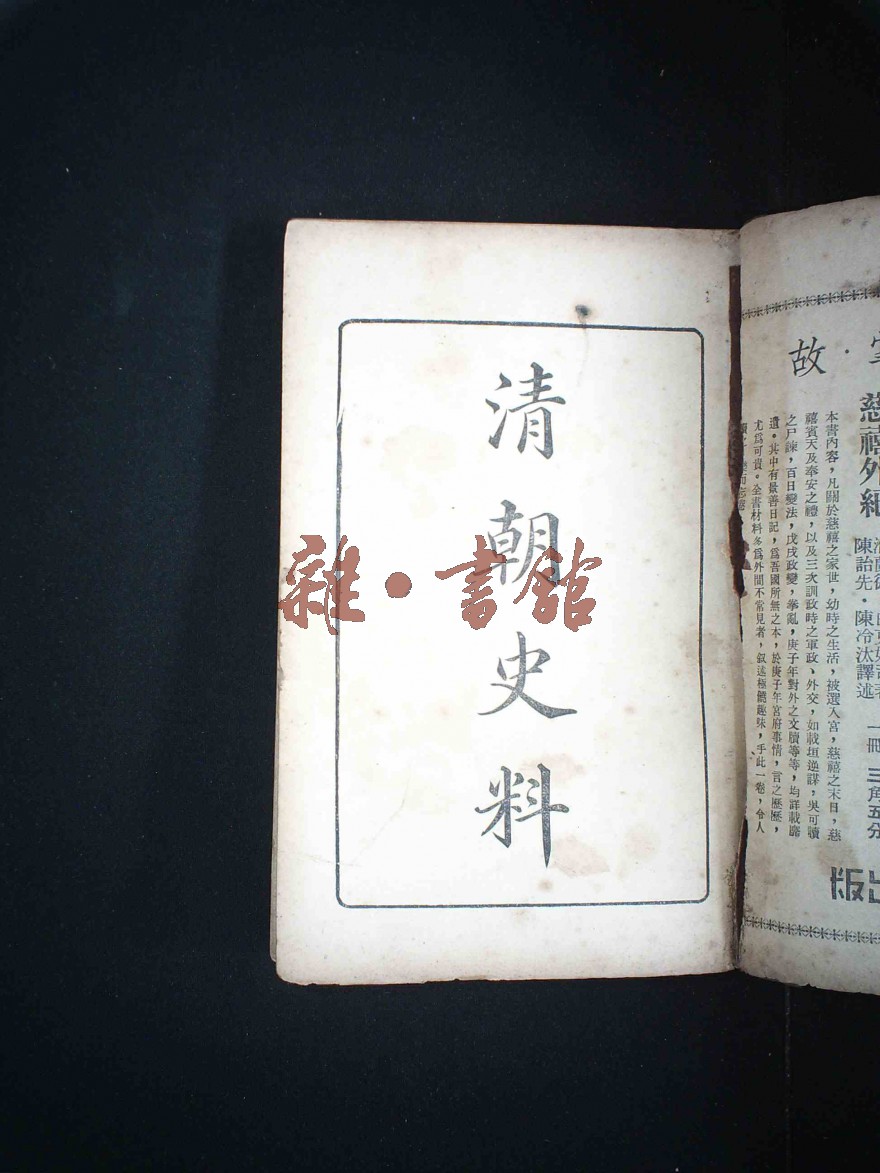 清朝史料
雜·書館
故
慈禧外紀
陳詒先·陳冷汰譯述
一冊 三角五分
本書內容，凡關於慈禧之家世，幼時之生活，被選入宮，慈禧之末日，慈
禧賓天及奉安之禮，以及三次訓政時之軍政、外交，如載垣逆謀，吳可讀
之尸諫，百日變法，戊戌政變，拳亂，庚子年對外之文牘等等，均詳載靡
遺。其中有景善日記，爲吾國所無之本，於庚子年宮府事情，言之歷歷，
尤爲可貴。全書材料多爲外間不常見者，叙述極饒趣味，手此一卷，令人
出版